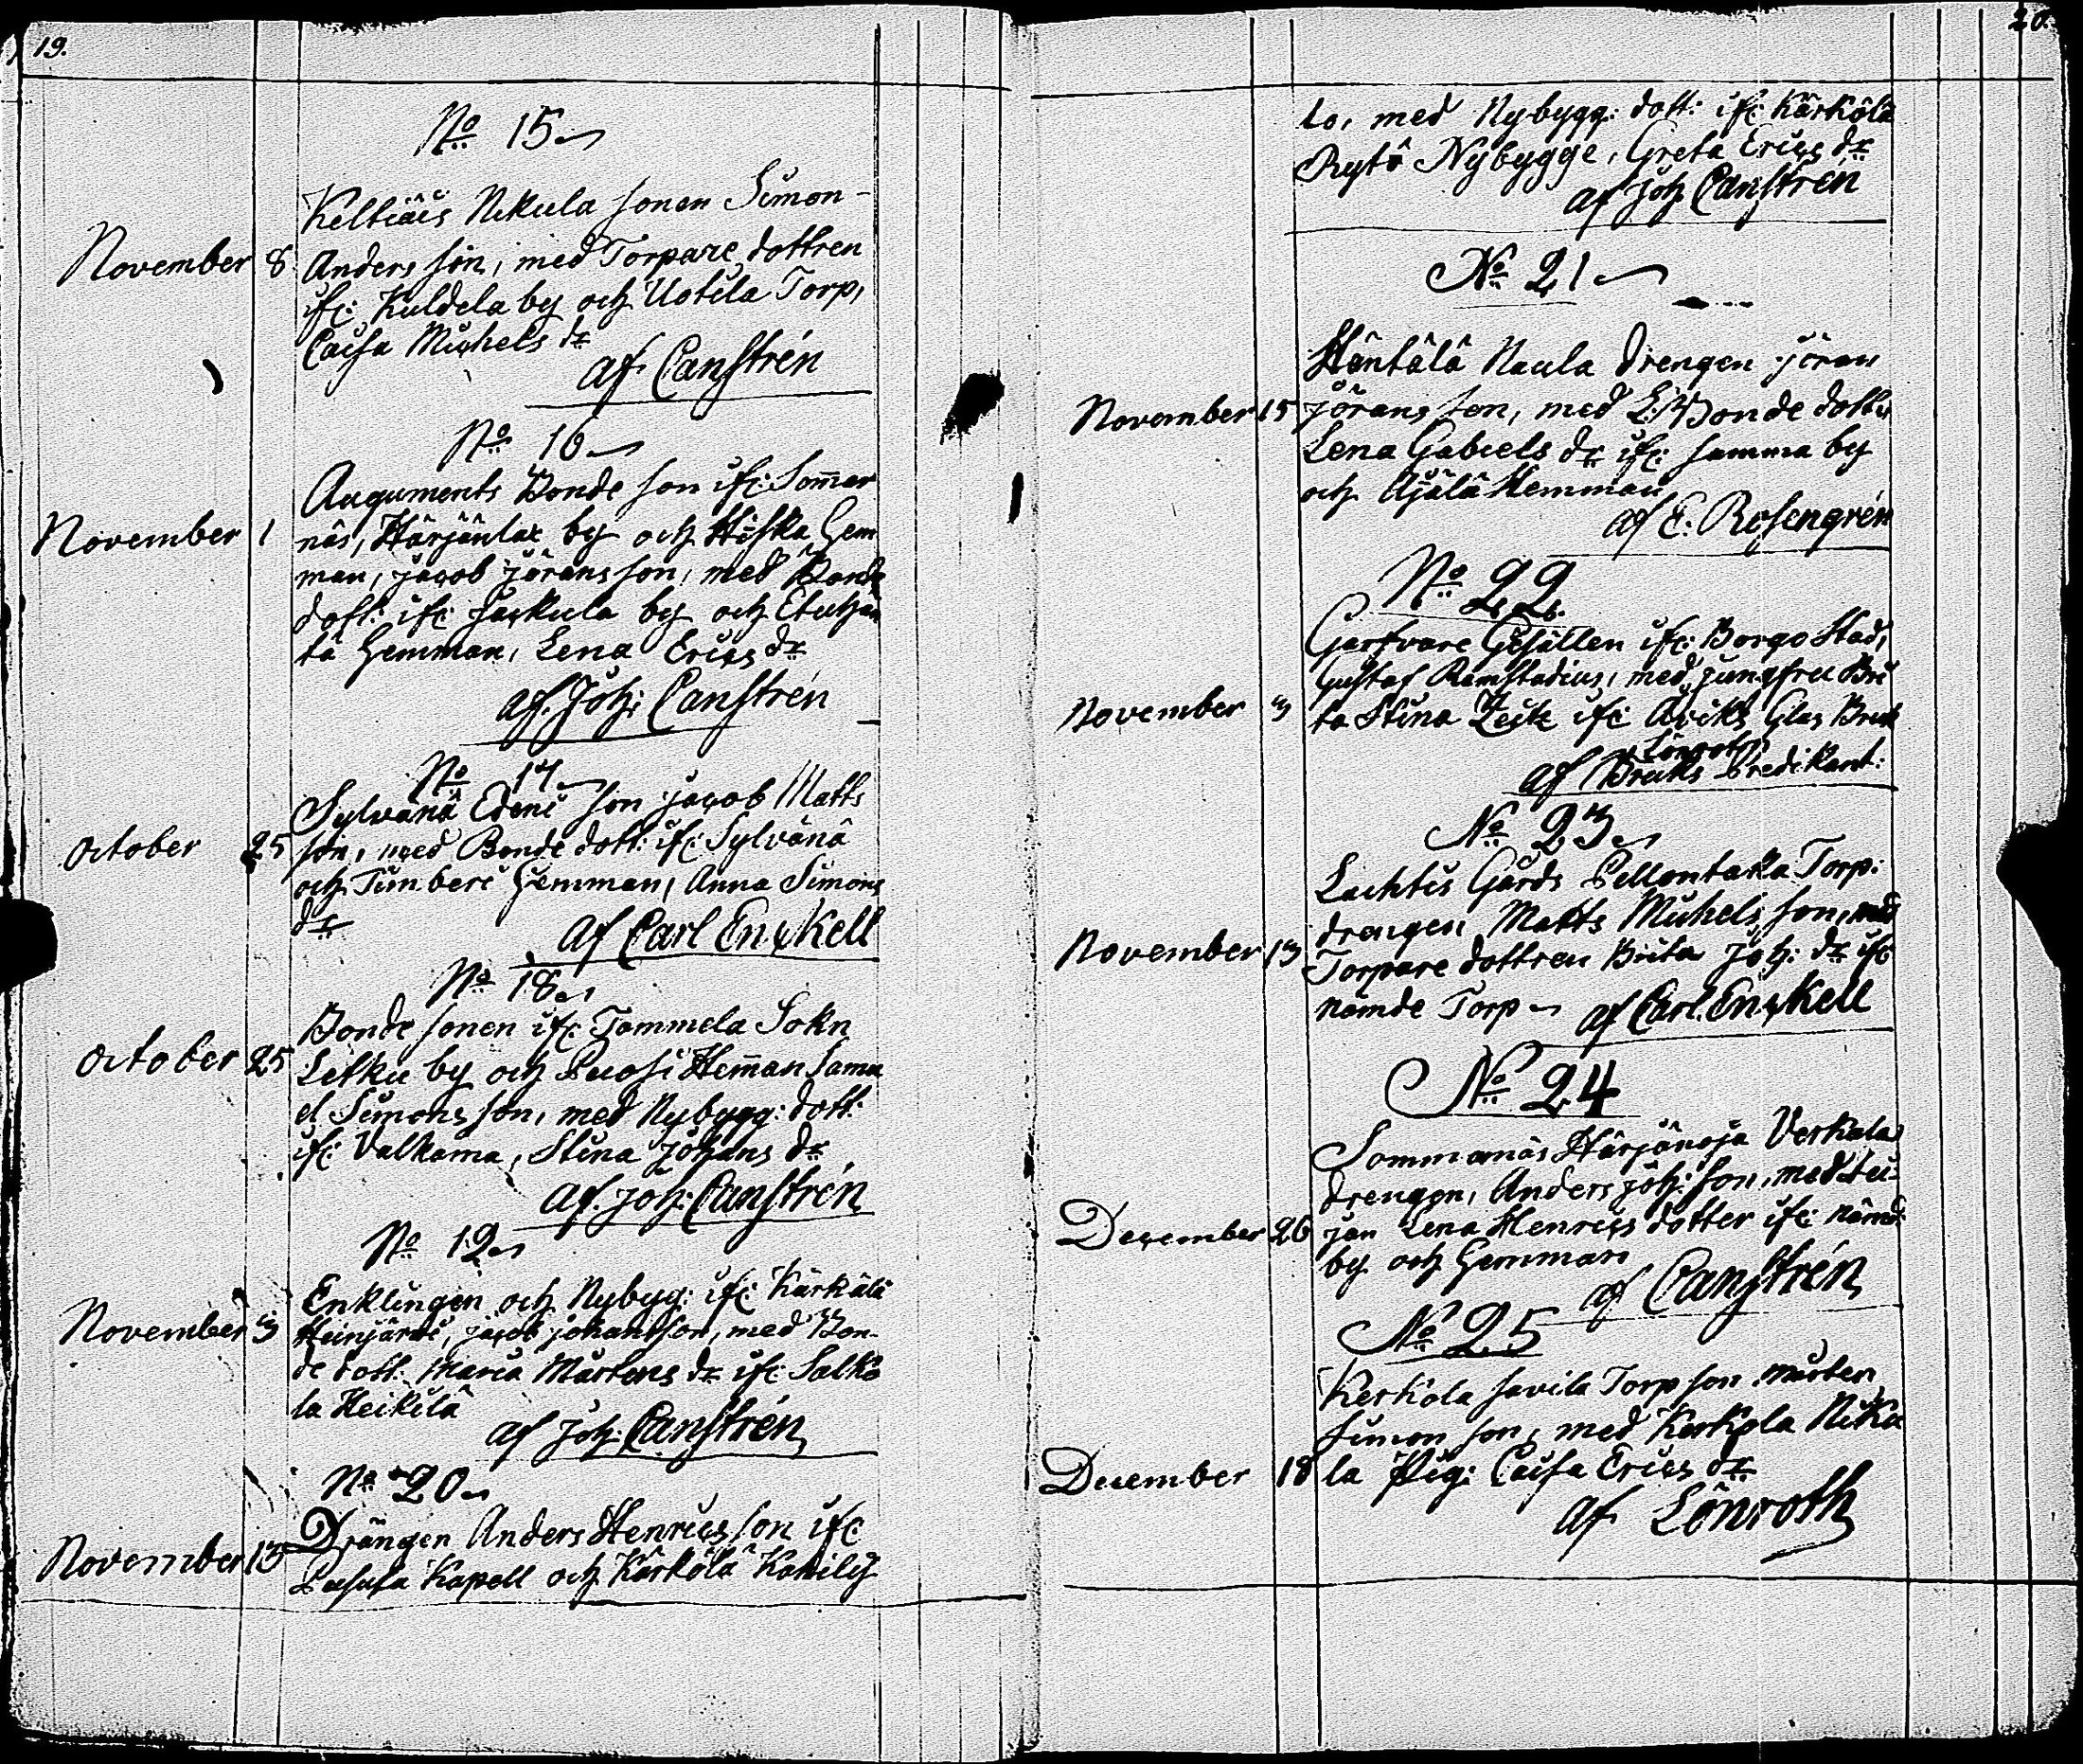 19.
No 15
Keltiäis Nikula sonen Simon
November 8 Anders son, med Torpare dottren
ifr: Kuldela by och Uotila Torp,
Caisa Michels dr
af Canstrén
No 16
Auguments Bonde son ifr: Sommar
November 1 näs, Härjänlax by och Hiska Hem
man, jacob jörans son, med Bonde
dott: ifr: by och
tä Hemman, Lena Erics dr
af. Joh: Canstrén
No 17
Sylvänä Edeni son jacob Matts
October 25 son, med Bonde dott: ifr: Sylvänä
och Timberi Hemman, Anna Simons
dr
af Carl Enckell
No 18
Bonde sonen ifr: Tammela Sokn
October 25 Letku by och Hemman Samu
el Simons son, med Nybygg: dott:
ifr: Valkama, Stina johans dr
af. joh: Canstrén
No 19
Enklingen och Nybyg: ifr: Kärkälä
November 3 Heinjärwi, jacob johansson, med Bon-
de dott: Maria Mårtens dr ifr: Salko
la Heikilä
af Joh: Canstrén
No 20
Drängen Anders Henrics son ifr:
November 15 Pusula Kapell och Kärkölä
20.
to, med Nybygg: dott: ifr: Kärkölä
Rytö Nybygge, Greta Erics dr
af Joh Canstrén
No 21
Häntälä Naula drengen jöran
November 15 jörans son, med Bonde dottr
Lena Gabiels dr ifr: samma by
och Äjälä Hemman
af E: Rosengrén
No 22
Garfvare Gesällen ifr: Borgo Stad,
Gustaf Ramstadius, med jungfru Bri
November 3 ta Stina Zeitz ifr: Åviks Glas Bruk
Lönroth
af Bruks Predikant:
No 23
Lachtis Gårds Pellontaka Torp:
drengen Matts Michels son, med
November 13 Torpare dottren Brita Joh: dr ifr:
nämde Torp af Carl Enckell
No 24
Sommanäs Härjänoja Verkala
drengen, Anders joh: son, med
December 26 pan Lena Henrics dotter ifr: nämd:
by och Hemman
af Canstrén
No 25
Kerkola savila Torp son mårten
Simon son, med Kerkola Niku
December 18 la Pig: Caisa Erics dr
af Lönroth